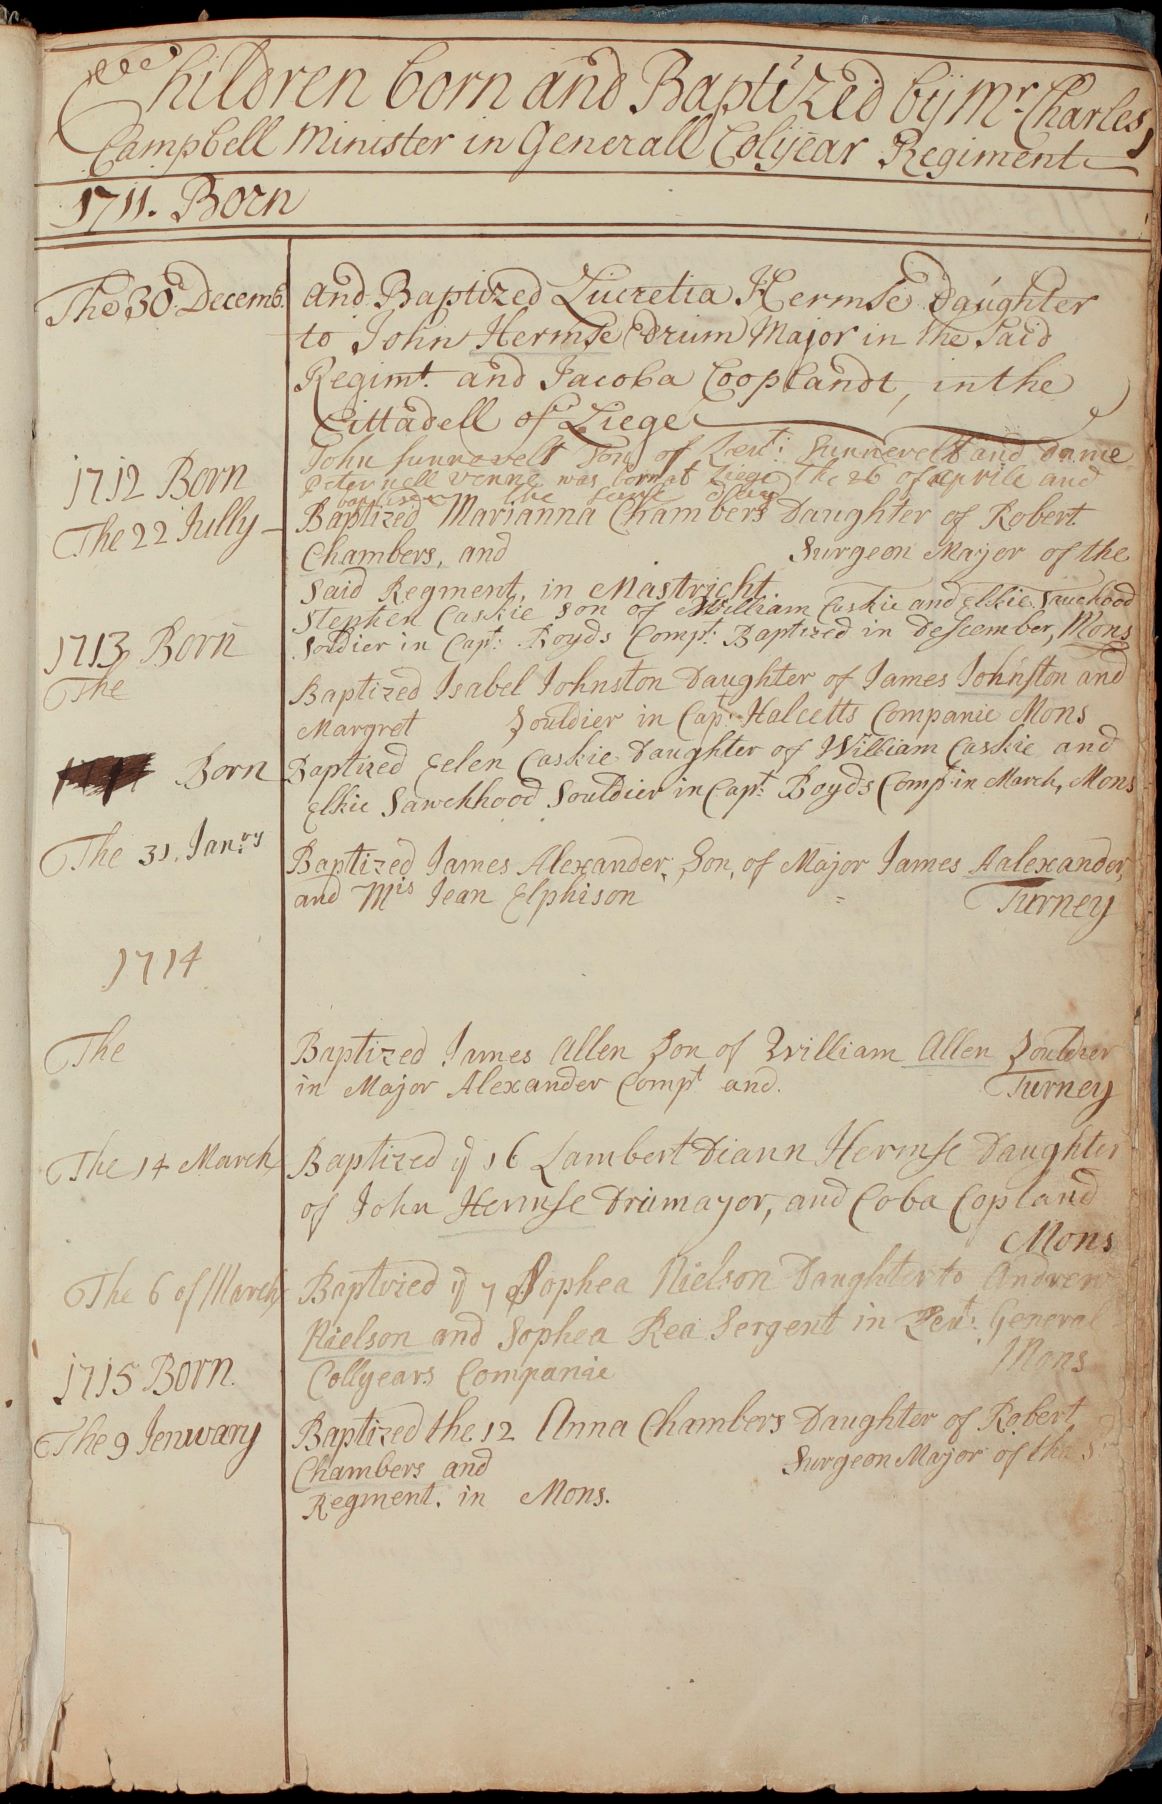 Children born and Baptized by Mr. Charles
Campbell Minister in Generall Colijear Regiment
1711. Born
The 30 Decemb. and Baptized Lucretia Hermse Daughter
to John Hermse Drum Major in the Said
Regimt. and Jacoba Cooplandt, in the
Cittadell of Liege
John Sunnevelt Son of Leut: Sunnevelt and Dame
Peternell Venne was born at Liege the 26 of aprile and
1712 Born
baptised the same day
The 22 Jully Baptized Marianna Chambers Daughter of Robert
Chambers, and Surgeon Major of the
Said Regment, in Mastricht.
Stephen Caskie son of William Caskie and Elkie Sawchood
1713 Born
Soldier in Capt: Boyds Compt: Baptized in Descember, Mons
The Baptized Isabel Johnston Daughter of James Johnston and
Margret Souldier in Capt: Halcetts Companie Mons
Born Baptized Eelen Caskie Daughter of William Caskie and
Elkie Sawchhood Souldier in Capt: Boyds Comp in March, Mons
The 31. Janry Baptized James Alexander, Son, of Major James Aalexander,
and Mis Jean Elphison Turney
1714
The Baptized James Allen Son of William Allen Souldier
in Major Alexander Compt and. Turney
The 14 March Baptized ij 16 Lambert Diann Hermse Daughter
of John Hermse Drumayor, and Coba Copland
Mons
The 6 of March Baptized ij 7 Sophea Nielson Daughter to Andrew
Nielson and Sophea Rea Sergent in Leut: General
Collyears Companie Mons
1715 Born.
The 9 Jenwary Baptized the 12 Anna Chambers Daughter of Robert
Chambers and Surgeon Major of the Sd
Regment. in Mons.